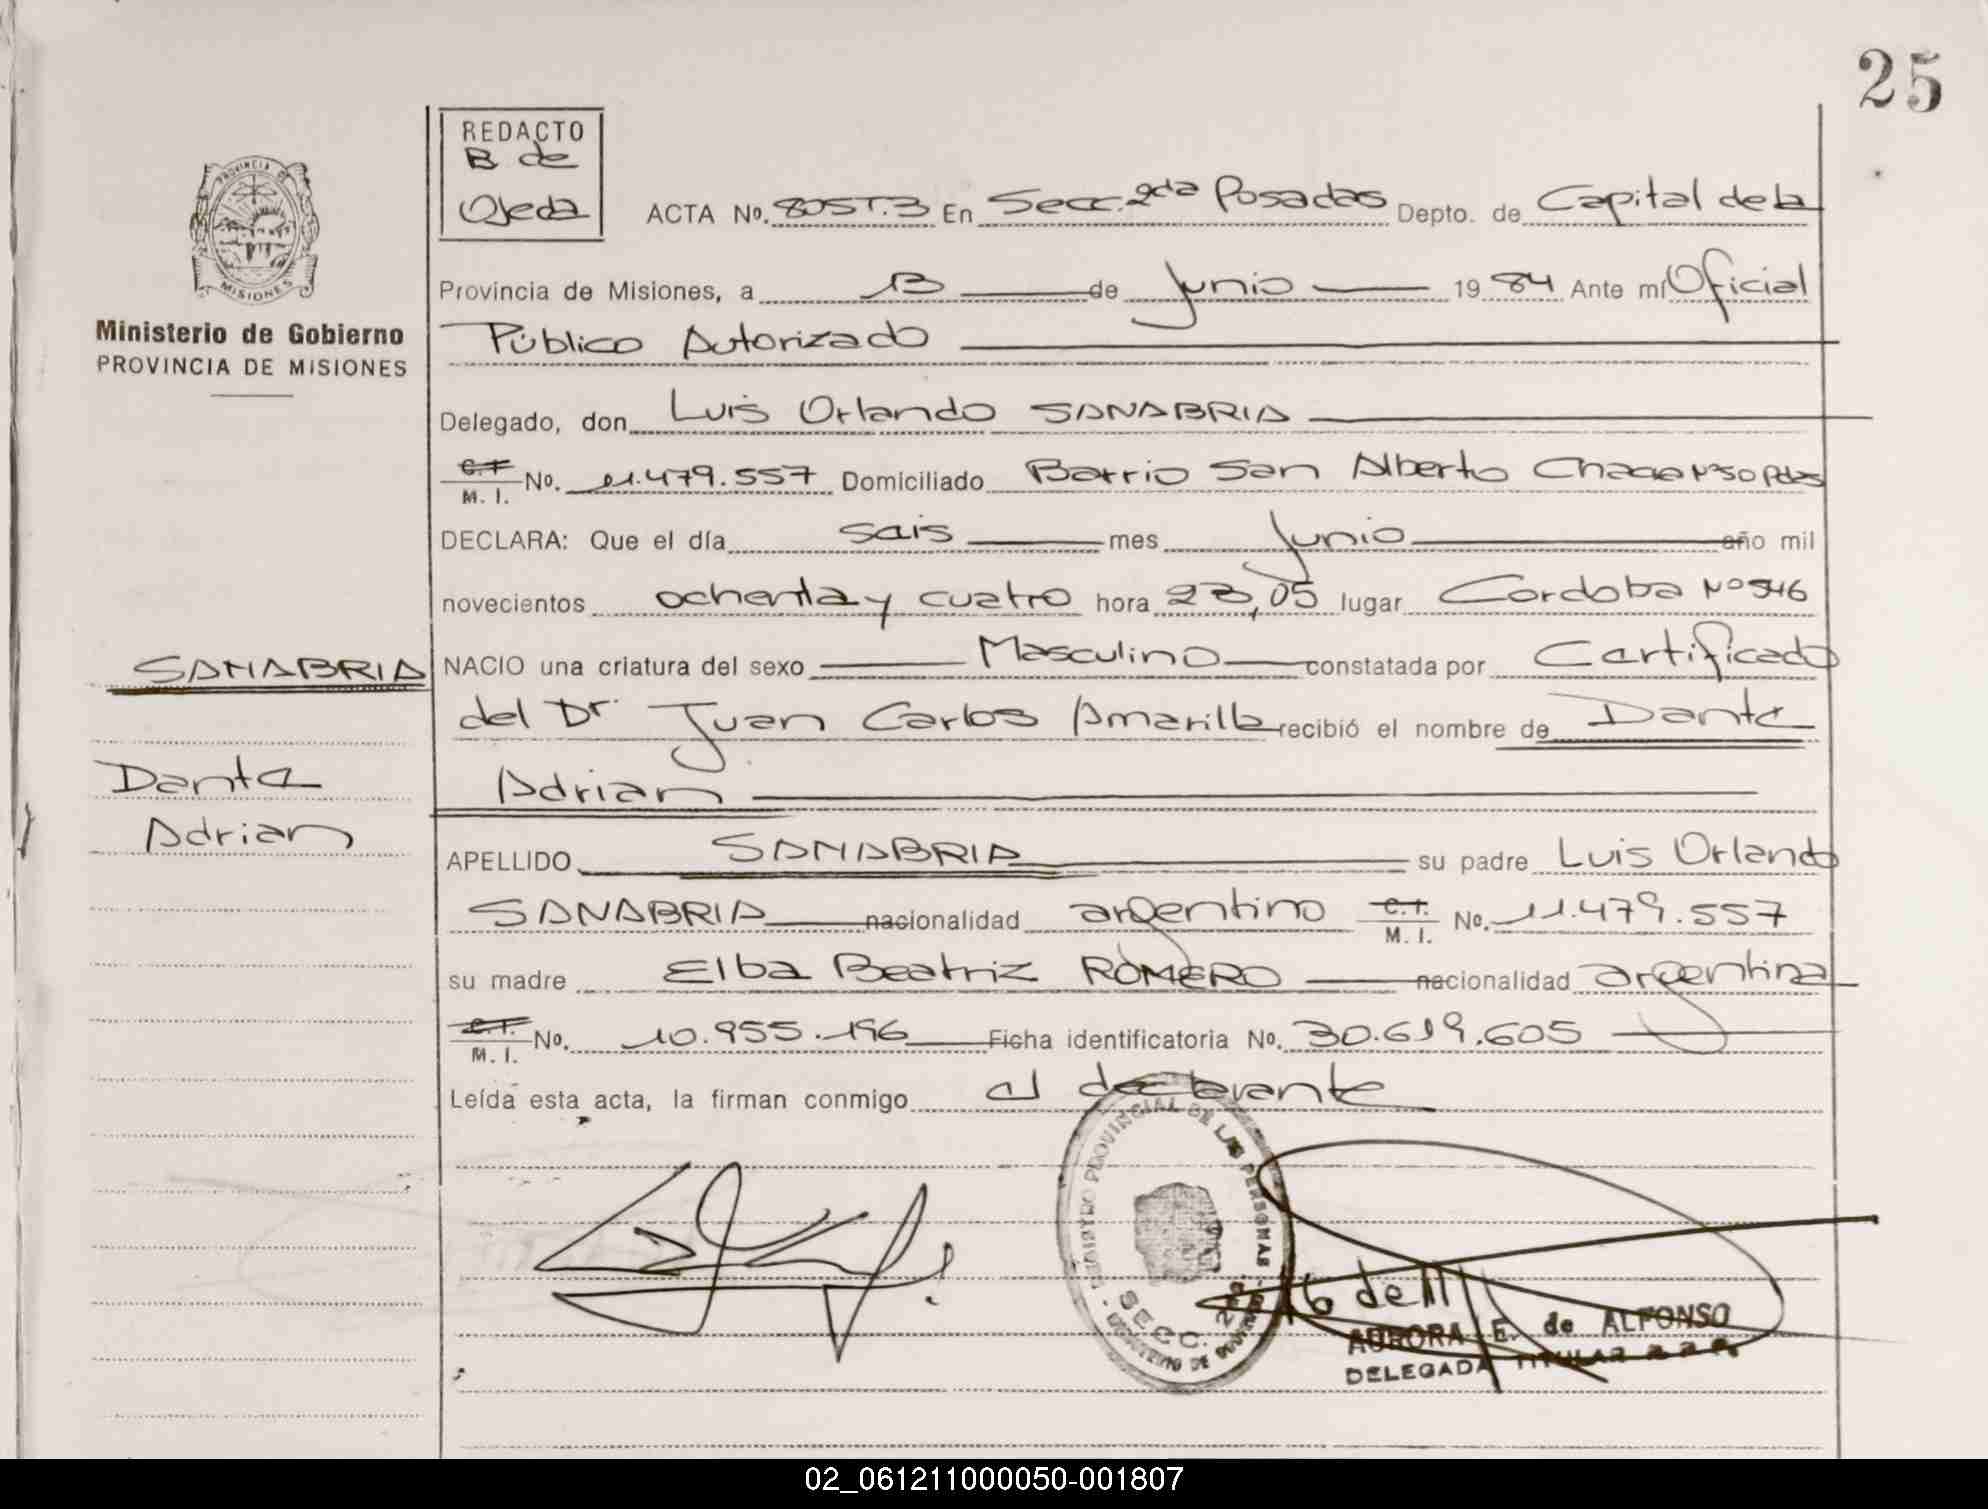 25
REDACTO
B de
Ojeda
ACTA No. 805T.3 En Secc. 2da Posadas Depto. de Capital de la
PROVINCIA DE
MISIONES
Provincia de Misiones, a 13 de Junio 1984 Ante mí Oficial
Ministerio de Gobierno
PROVINCIA DE MISIONES
Público Autorizado
Delegado, don Luis Orlando SANABRIA
C.I. M. I. No. 11.479.557 Domiciliado Barrio San Alberto Chacra Nº 50 Pdas
DECLARA: Que el día seis mes Junio año mil
novecientos ochenta y cuatro hora 23,05 lugar Cordoba Nº 546
SANABRIA
NACIO una criatura del sexo Masculino constatada por Certificado
del Dr. Juan Carlos Amarilla recibió el nombre de Dante
Dante
Adrian
Adrian
APELLIDO SANABRIA su padre Luis Orlando
SANABRIA nacionalidad argentino C.I. M. I. No. 11.479.557
su madre Elba Beatriz ROMERO nacionalidad argentina
C.I. M. I. No. 10.955.196 Ficha identificatoria No. 30.619.605
Leída esta acta, la firman conmigo el declarante
REGISTRO PROVINCIAL DE LAS PERSONAS
SECC. 2da
AURORA E. de ALFONSO
DELEGADA TITULAR
02_061211000050-001807